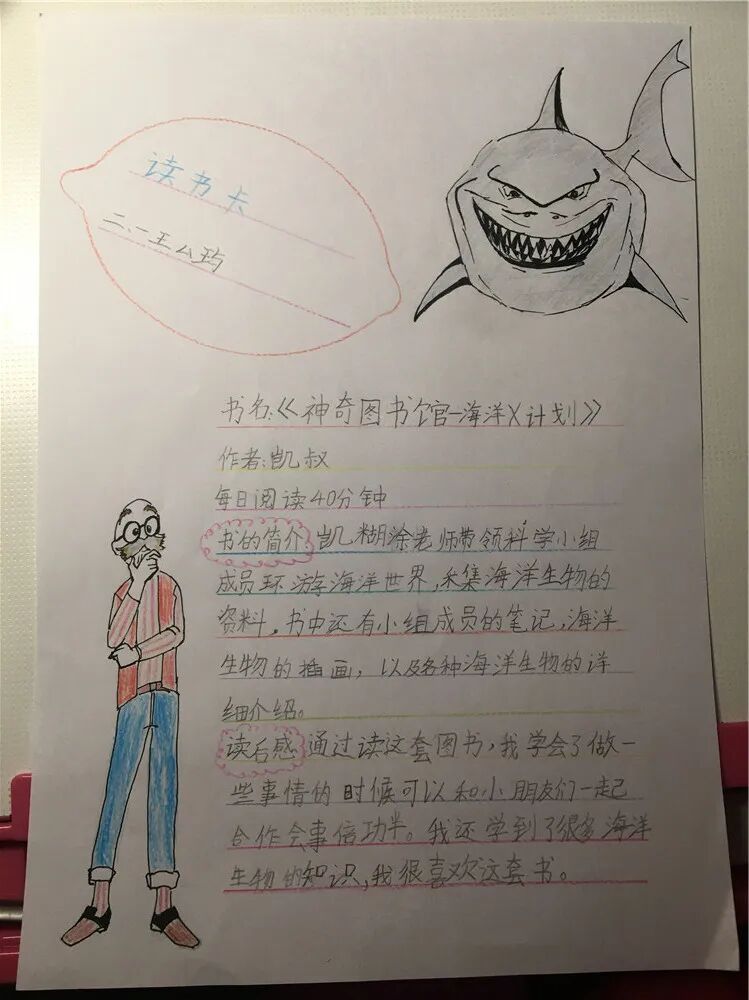 读书卡
二、一王厶玙
书名:《神奇图书馆-海洋X计划》
作者:凯叔
每日阅读40分钟
书的简介:凯糊涂老师带领科学小组
成员环游海洋世界,采集海洋生物的
资料。书中还有小组成员的笔记,海洋
生物的插画,以及各种海洋生物的详
细介绍。
读后感 通过读这套图书,我学会了做一
些事情的时候可以和小朋友们一起
合作会事倍功半。我还学到了很多海洋
生物的知识,我很喜欢这套书。